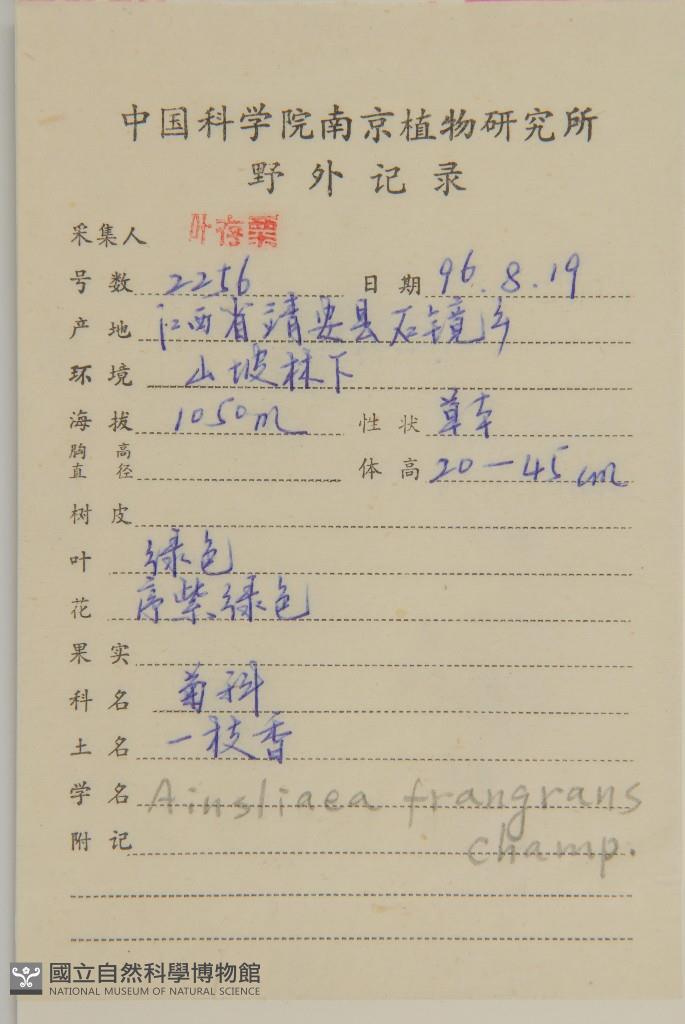 中国科学院南京植物研究所
野外记录
采集人 叶存粟
号数 2256 日期 96.8.19
产地 江西省靖安县石镜乡
环境 山坡林下
海拔 1050m 性状 草本
胸高直径 体高 20-45cm
树皮
叶 绿色
花 序紫绿色
果实
科名 菊科
土名 一枝香
学名 Ainsliaea frangrans
附记 Champ.
國立自然科學博物館
NATIONAL MUSEUM OF NATURAL SCIENCE